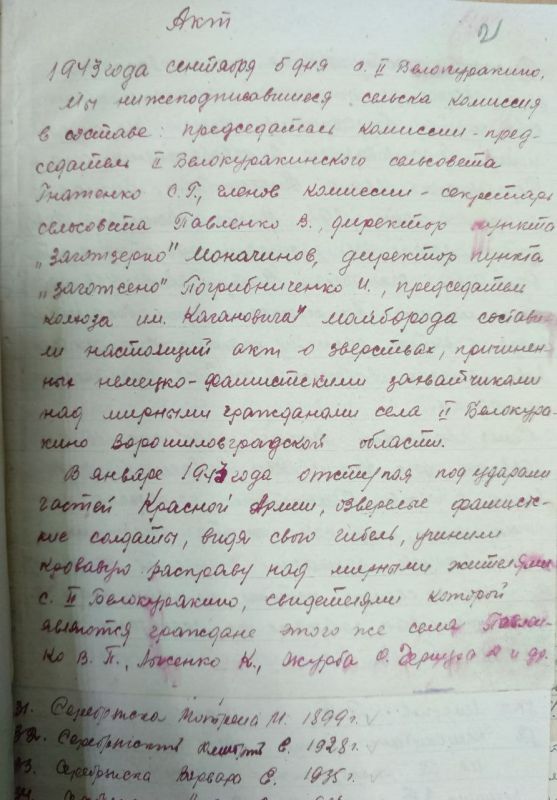 Акт
21
1943 года сентября 5 дня с. II Белокуракино.
Мы нижеподписавшиеся сельска комиссия
в составе: председатель комиссии - пред-
седатель II Белокуракинского сельсовета
Гнатенко С.Г., членов комиссии - секретарь
сельсовета Павленко В., директор пункта
„Заготзерно" Моначинов, директор пункта
„Заготсено" Погрибниченко И., председатель
колхоза им. Кагановича" Майборода состави-
ли настоящий акт о зверствах, причинен-
ных немецко-фашистскими захватчиками
над мирными гражданами села II Белокура-
кино Ворошиловградской области.
В январе 1943 года отступая под ударами
частей Красной Армии, озверелые фашист-
кие солдаты, видя свою гибель, учинили
кровавую расправу над мирными жителями
с. II Белокуракино, свидетелями которой
являются граждане этого же села Павлен-
ко В.П., Лысенко К., Журба О. и др.
31. Серебрянска Мотрена И. 1899 г.
32. Серебрянский Е. 1928 г.
33. Серебрянска Варвара Е. 1935 г.
34.